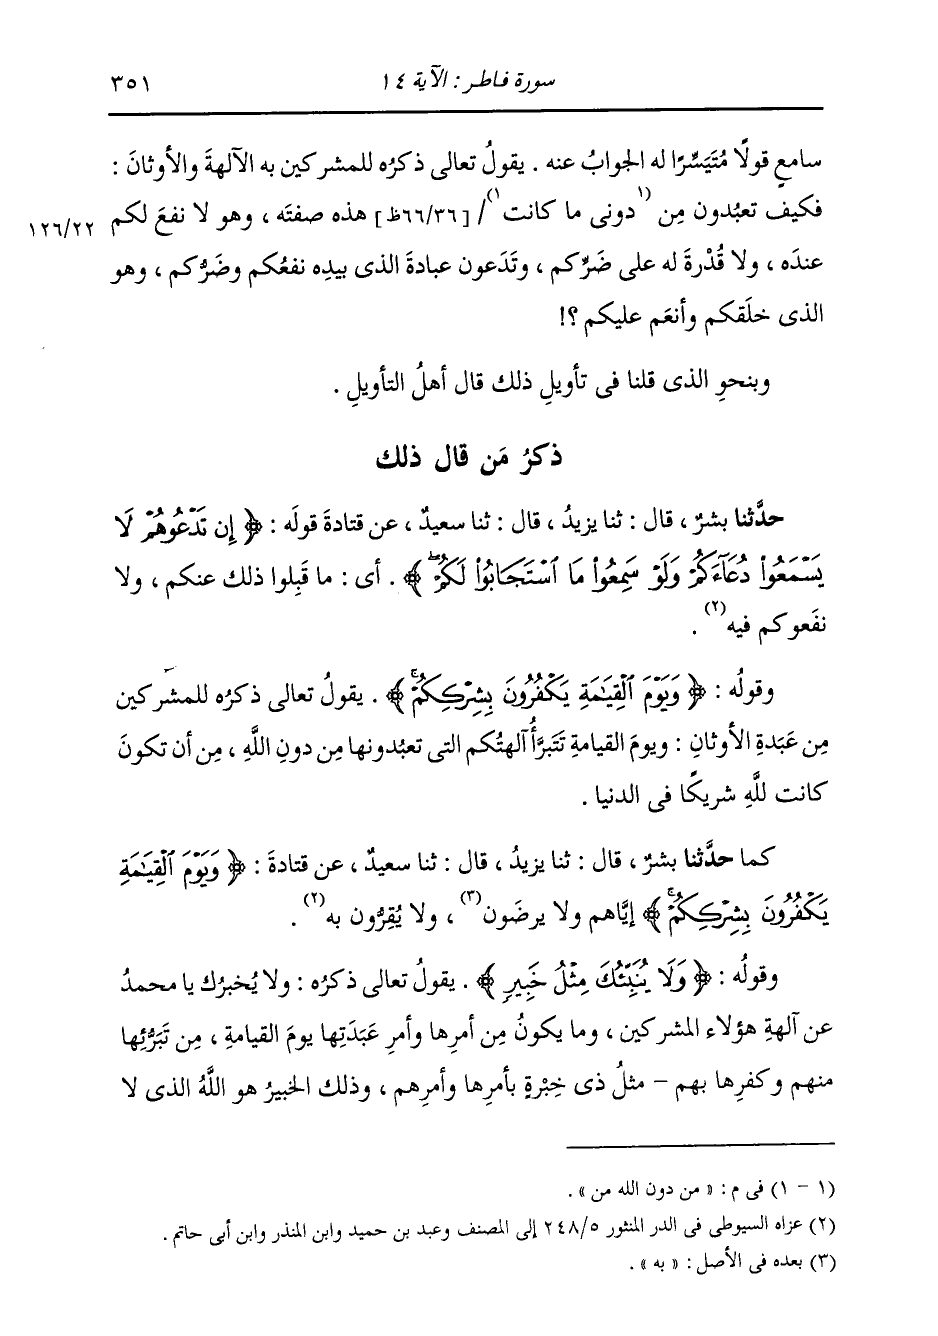 سورة فاطر : الآية ١٤ ٣٥١
سامعٍ قولًا مُتَيَسِّرًا له الجوابُ عنه . يقولُ تعالى ذكرُه للمشركين به الآلهةَ والأوثانَ :
فكيف تعبُدون مِن (١دونى ما كانت١)/ [٦٦/٣٦ظ] هذه صفتَه ، وهو لا نفعَ لكم ١٢٦/٢٢
عندَه ، ولا قُدْرةَ له على ضَرِّكم ، وتَدَعون عبادةَ الذى بيدِه نفعُكم وضَرُّكم ، وهو
الذى خلَقكم وأنعَم عليكم ؟!
وبنحوِ الذى قلنا فى تأويلِ ذلك قال أهلُ التأويلِ .
ذكرُ مَن قال ذلك
حدَّثنا بشرٌ ، قال : ثنا يزيدُ ، قال : ثنا سعيدٌ ، عن قتادةَ قولَه : ﴿ إِن تَدْعُوهُمْ لَا
يَسْمَعُوا۟ دُعَآءَكُمْ وَلَوْ سَمِعُوا۟ مَا ٱسْتَجَابُوا۟ لَكُمْ ۖ ﴾ . أى : ما قَبِلوا ذلك عنكم ، ولا
نفَعوكم فيه(٢) .
وقولُه : ﴿ وَيَوْمَ ٱلْقِيَٰمَةِ يَكْفُرُونَ بِشِرْكِكُمْ ۚ ﴾ . يقولُ تعالى ذكرُه للمشركين
مِن عَبَدةِ الأوثانِ : ويومَ القيامةِ تَتَبرَّأُ آلهتُكم التى تعبُدونها مِن دونِ اللَّهِ ، مِن أن تكونَ
كانت للَّهِ شريكًا فى الدنيا .
كما حدَّثنا بشرٌ ، قال : ثنا يزيدُ ، قال : ثنا سعيدٌ ، عن قتادةَ : ﴿ وَيَوْمَ ٱلْقِيَٰمَةِ
يَكْفُرُونَ بِشِرْكِكُمْ ۚ ﴾ إيَّاهم ولا يرضَون(٣) ، ولا يُقِرُّون به(٢) .
وقولُه : ﴿ وَلَا يُنَبِّئُكَ مِثْلُ خَبِيرٍ ﴾ . يقولُ تعالى ذكرُه : ولا يُخبرُك يا محمدُ
عن آلهةِ هؤلاء المشركين ، وما يكونُ مِن أمرِها وأمرِ عَبَدَتِها يومَ القيامةِ ، مِن تَبَرُّئِها
منهم وكفرِها بهم – مثلُ ذى خِبْرةٍ بأمرِها وأمرِهم ، وذلك الخبيرُ هو اللَّهُ الذى لا
(١ – ١) فى م : « من دون الله من » .
(٢) عزاه السيوطى فى الدر المنثور ٢٤٨/٥ إلى المصنف وعبد بن حميد وابن المنذر وابن أبى حاتم .
(٣) بعده فى الأصل : « به » .